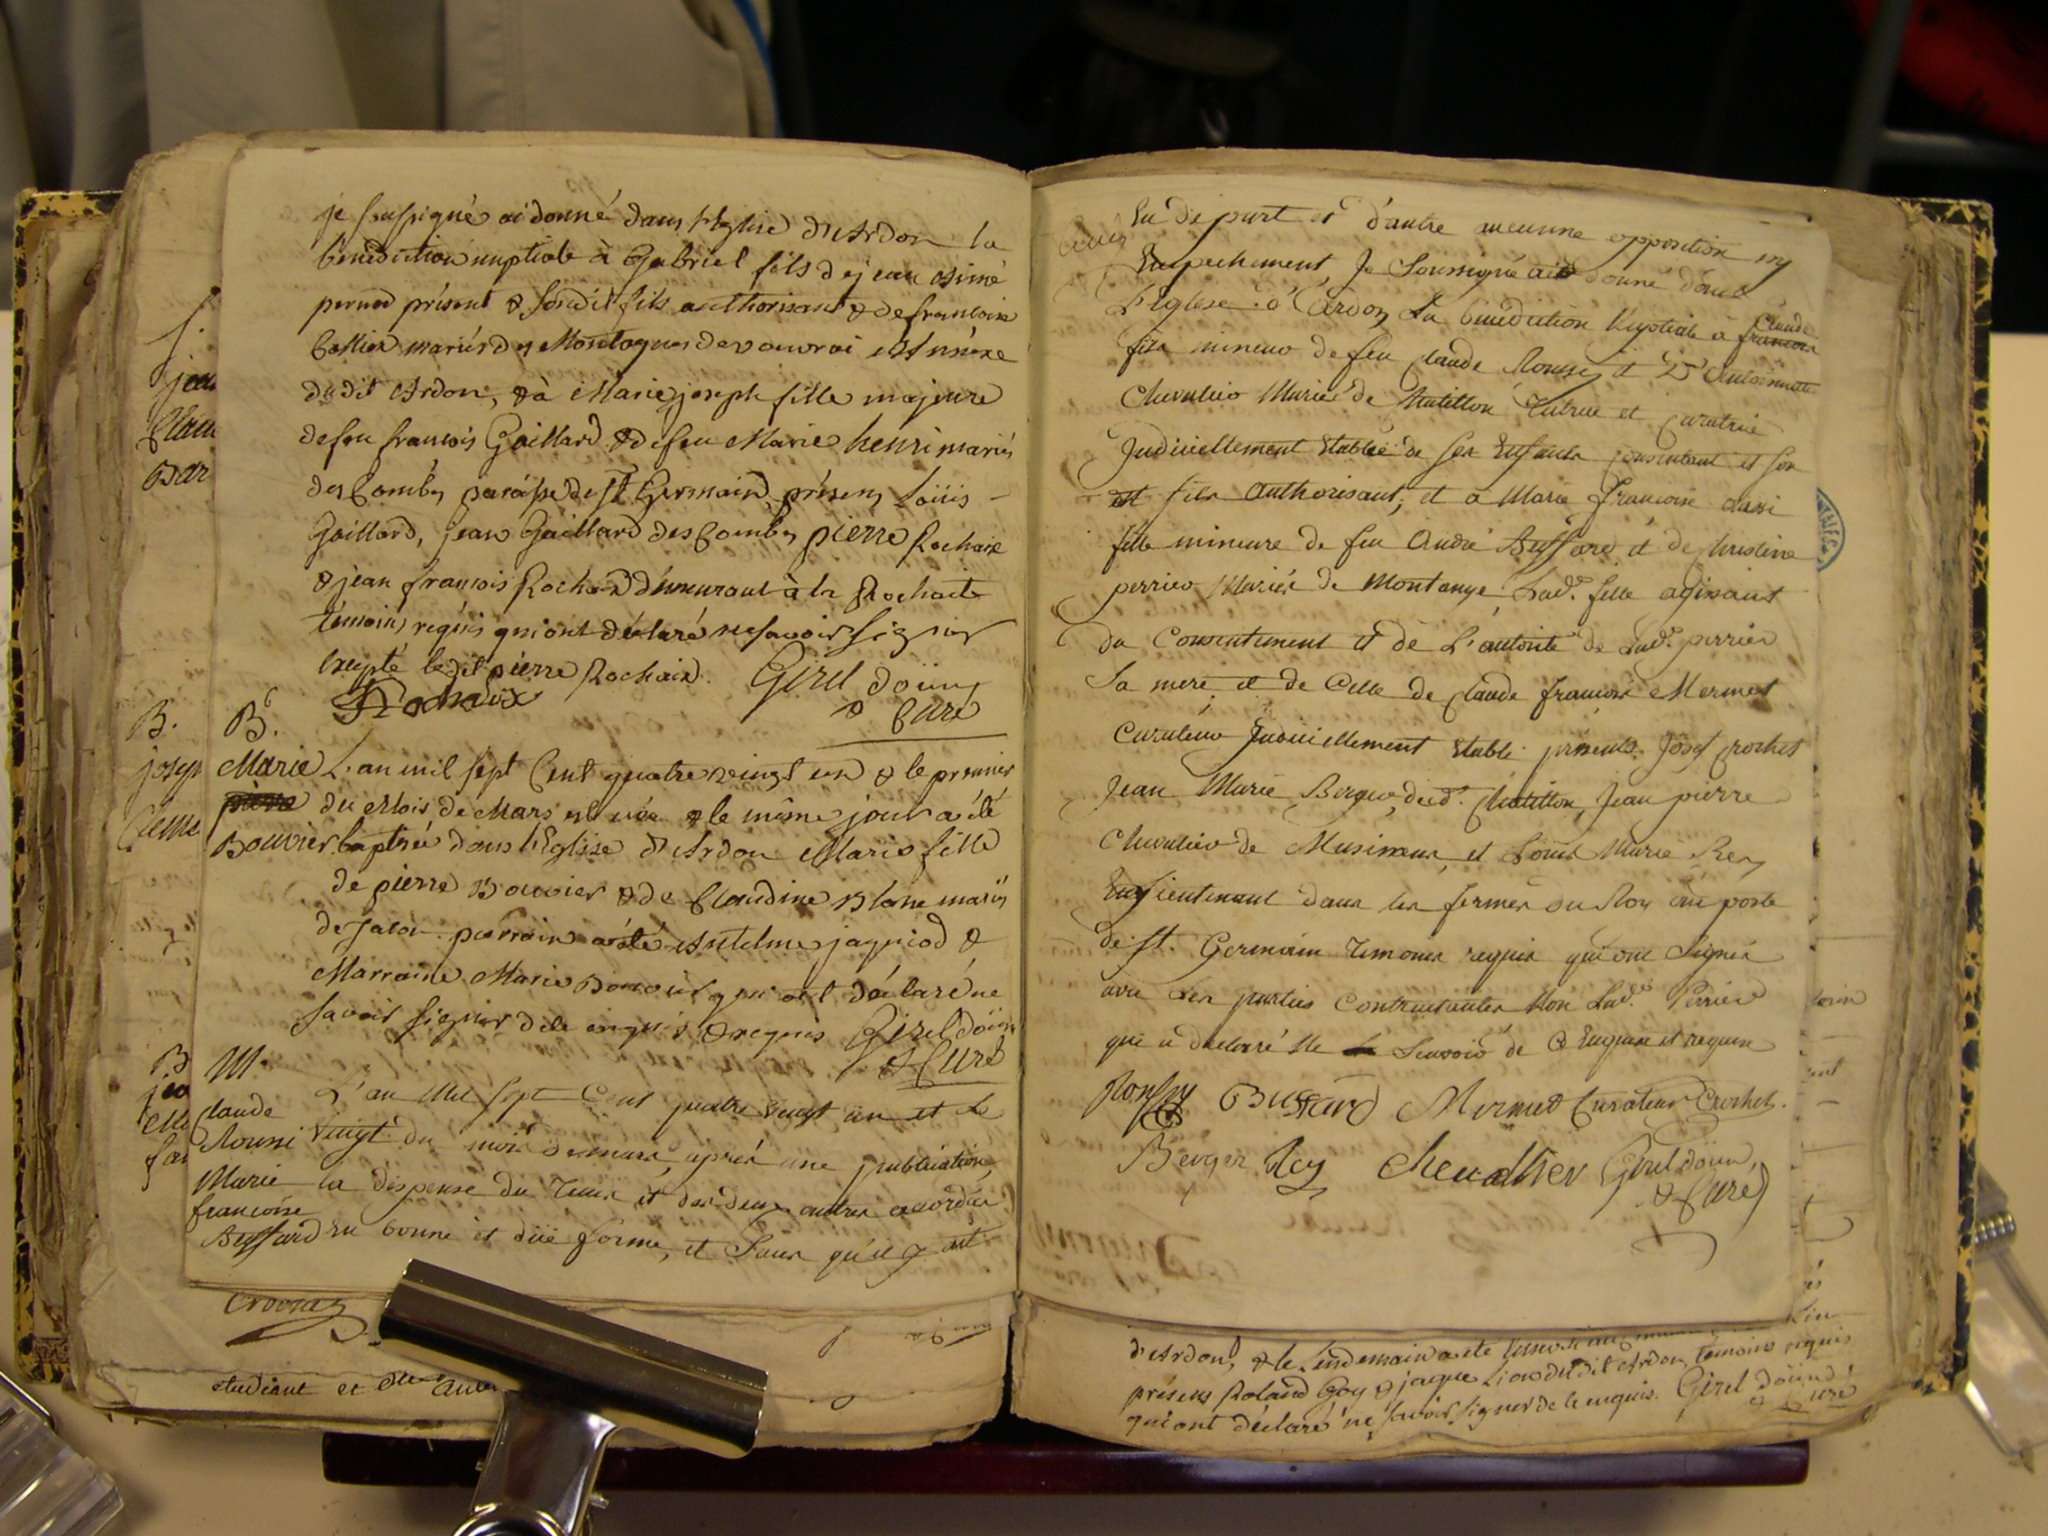 je soussigné ai donné dans l'Eglise d'Ardon la
benediction nuptiale à Gabriel fils de jean Aimé
pernod présent & sondit fils authorisant & de francoise
mariés des Montagnes de vouvrai Annéxe
dudit Ardon, & à Marie joseph fille majeure
de feu francois Gaillard & de feu Marie henri mariés
des Combes paroisse de St Germain présens Loüis
Gaillard, jean Gaillard des Combes pierre Rochaix
& jean francois Rochaix démeurant à la Rochaite
témoins réquis qui ont déclaré ne savoir signer
Excepté ledit pierre Rochaix. Girel doüin
Rochaix & Curé
B. Bt.
Marie L'an mil sept Cent quatre vingt un & le premier
pierre du Mois de Mars est née & le même jour a été
Bouvier baptisée dans l'Eglise d'Ardon Marie fille
de pierre Bouvier & de Claudine Blanc mariés
de parrain a été Antelme jaquiod &
Marraine Marie Bouvier qui ont déclaré ne
savoir signer de le enquis & requis Girel doüin
& Curé
M.
L'an Mil sept Cent quatre vingt un et Le
Claude
Roussi vingt du mois de mars, après une publication,
Marie la dispense du tems et des deux autres accordées
francoise
Buffard En bonne et düe forme, et Sans qu'il y ait
Crovraz
etudiant et Dlle
Eu de part et d'autre aucunne opposition ny
Empechement, Je Soussigné ai donné dans
L'Eglise d'Ardon La bénédiction Nuptiale à francois Claude
fils mineur de feu Claude Roussy et Dlle Antoinette
Chevalier Mariés de Chatillon Tutrice et Curatrice
Judiciellement Etablie de ses Enfants Consentant et son
dt fils authorisant; et a Marie francoise aussi
fille mineure de feu André Buffard et de Christine
perrier Mariés de Montange, Lade. fille agissant
du Consentement et de L'autorité de Lade. perrier
Sa mere, et de Celle de Claude francois Mermet
Curateur Judiciellement Etabli présents Josef Crochet
Jean Marie Berger dud. Chatillon, Jean pierre
Chevalier de Musinens, et Louis Marie Rey
Lieutenant dans les fermes du Roy au poste
de St. Germain Temoins requis qui ont Signés
avec Les parties Contractantes Non Lade. Perrier
qui a déclaré Ne Scavoir de Ce Enquise et requise
Roussy Buffard Mermet Curateur Crochet.
Berger Rey Chevallier Girel doüin
& Curé
d'Ardon, & le Lendemain a été
présens Roland Goy & jaque dudit Ardon témoins requis
qui ont déclaré ne savoir signer de le enquis. Girel doüin
& Curé